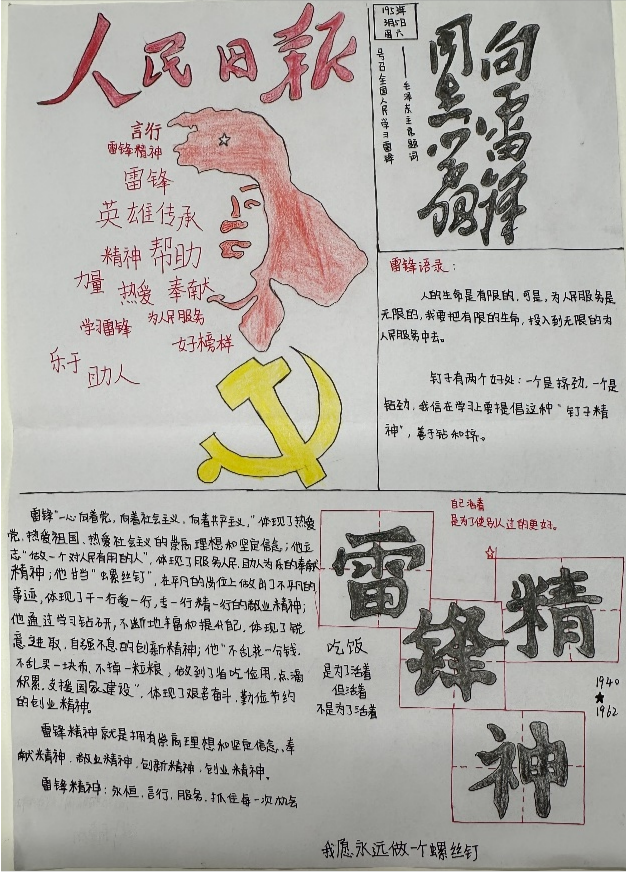 人民日报
言行
雷锋精神
雷锋
英雄传承
精神 帮助
力量 热爱 奉献
学习雷锋 为人民服务
好榜样
乐于
助人
1953年
3月5日
周六
——毛泽东主席题词
号召全国人民学习雷锋
向雷锋
同志学习
雷锋语录：
人的生命是有限的，可是，为人民服务是
无限的，我要把有限的生命，投入到无限的为
人民服务中去。
钉子有两个好处：一个是挤劲，一个是
钻劲，我们在学习上要提倡这种“钉子精
神”，善于钻和挤。
雷锋“一心向着党，向着社会主义，向着共产主义，”体现了热爱
党、热爱祖国、热爱社会主义的崇高理想和坚定信念；他立
志“做一个对人民有用的人”，体现了服务人民、助人为乐的奉献
精神；他甘当“螺丝钉”，在平凡的岗位上做出了不平凡的
事迹，体现了干一行爱一行，专一行精一行的敬业精神；
他通过学习钻研，不断地丰富和提升自己，体现了锐
意进取，自强不息的创新精神；他“不乱花一分钱，
不乱买一块布，不掉一粒粮，做到了省吃俭用，点滴
积累，支援国家建设”，体现了艰苦奋斗、勤俭节约
的创业精神。
雷锋精神就是拥有崇高理想和坚定信念、奉
献精神、敬业精神，创新精神，创业精神。
雷锋精神：永恒，言行，服务，抓住每一次机会
自己活着
是为了使别人过的更好。
雷锋精神
吃饭
是为了活着
但活着
不是为了活着
1940
★
1962
我愿永远做一个螺丝钉